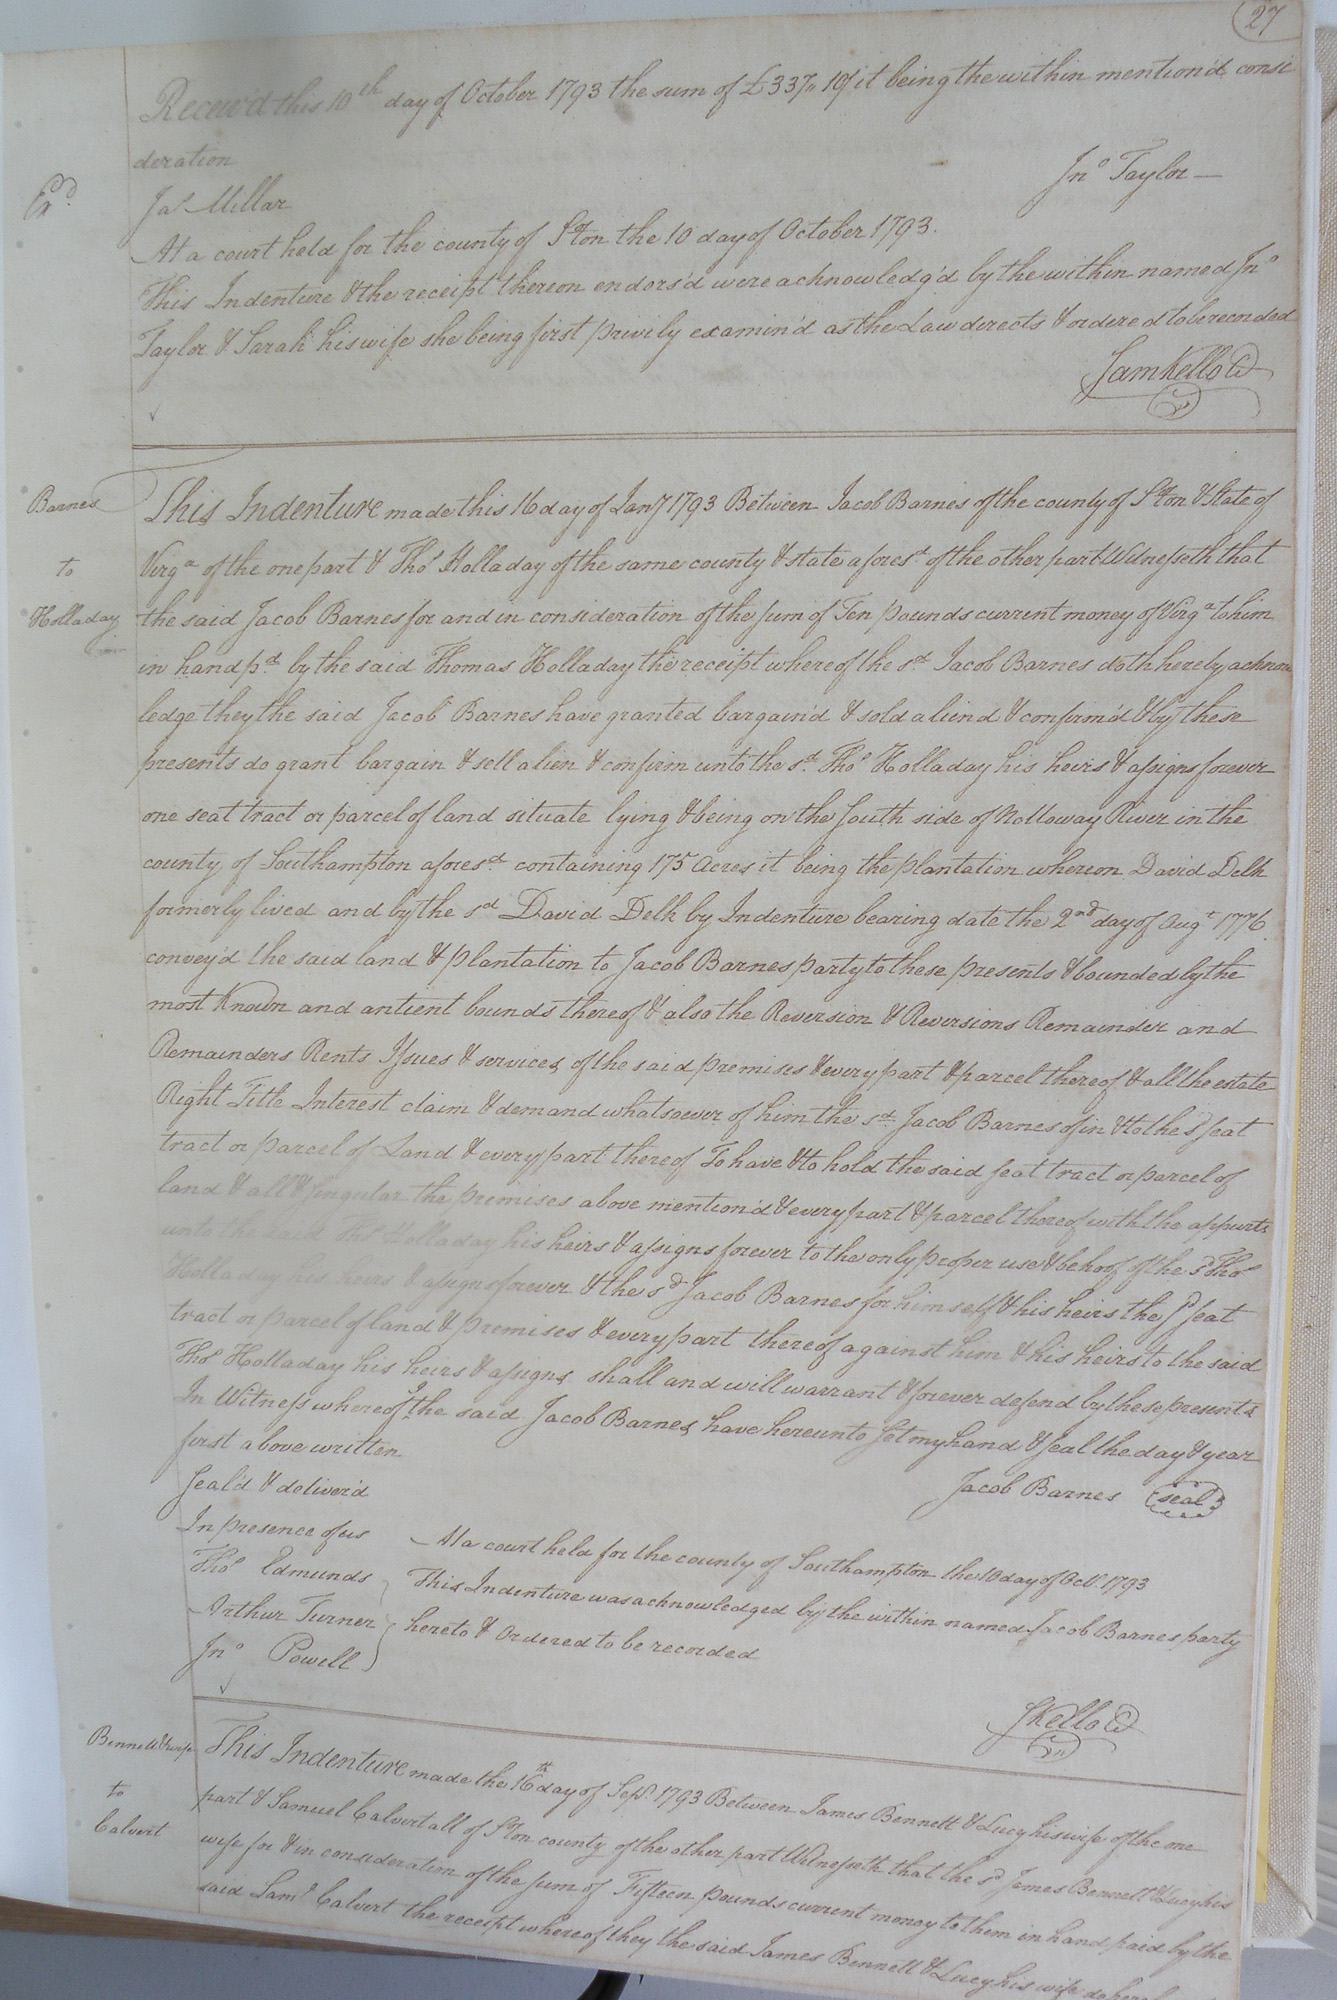 27
Receiv'd this 10th day of October 1793 the sum of £337.. 10/ it being the within mention'd consi
deration
Jno Taylor
Exd
Jas Millar
At a court held for the county of Ston the 10 day of October 1793.
This Indenture & the receipt thereon endors'd were acknowledg'd by the within named Jno
Taylor & Sarah his wife she being first privily examin'd as the Law directs & ordered to be recorded
Sam Kello C
Barnes
to
Holladay
This Indenture made this 16 day of Jany 1793 Between Jacob Barnes of the county of Ston & State of
Virga of the one part & Thos Holladay of the same county & state aforesd of the other part Witnesseth that
the said Jacob Barnes for and in consideration of the sum of Ten pounds current money of Virga to him
in hand pd by the said Thomas Holladay the receipt whereof the sd Jacob Barnes doth hereby acknow
ledge they the said Jacob Barnes have granted bargain'd & sold aliend & confirm'd & by these
presents do grant bargain & sell alien & confirm unto the sd Thos Holladay his heirs & assigns forever
one seat tract or parcel of land situate lying & being on the South side of Nottoway River in the
county of Southampton aforesd containing 175 Acres it being the plantation whereon David Delk
formerly lived and by the sd David Delk by Indenture bearing date the 2nd day of Augt 1776
convey'd the said land & plantation to Jacob Barnes party to these presents & bounded by the
most Known and antient bounds thereof & also the Reversion & Reversions Remainder and
Remainders Rents Issues & services of the said premises & every part & parcel thereof & all the estate
Right Title Interest claim & demand whatsoever of him the sd Jacob Barnes of in & to the sd seat
tract or parcel of Land & every part thereof To have & to hold the said seat tract or parcel of
land & all & singular the premises above mention'd & every part & parcel thereof with the appurts
unto the said Thos Holladay his heirs & assigns forever to the only proper use & behoof of the sd Thos
Holladay his heirs & assigns forever & the sd Jacob Barnes for himself & his heirs the sd seat
tract or parcel of land & premises & every part thereof against him & his heirs to the said
Thos Holladay his heirs & assigns shall and will warrant & forever defend by these presents
In Witness whereof I the said Jacob Barnes have hereunto set my hand & seal the day & year
first above written
Seal'd & deliver'd
Jacob Barnes seal
In presence of us
Thos Edmunds
Arthur Turner
Jno Powell
At a court held for the county of Southampton the 10 day of Octr 1793
This Indenture was acknowledged by the within named Jacob Barnes party
hereto & Ordered to be recorded
S Kello C
Bennett & wife
to
Calvert
This Indenture made the 16th day of Sepr 1793 Between James Bennett & Lucy his wife of the one
part & Samuel Calvert all of Ston county of the other part Witnesseth that the sd James Bennett & Lucy his
wife for & in consideration of the sum of Fifteen pounds current money to them in hand paid by the
said Saml Calvert the receipt whereof they the said James Bennett & Lucy his wife do